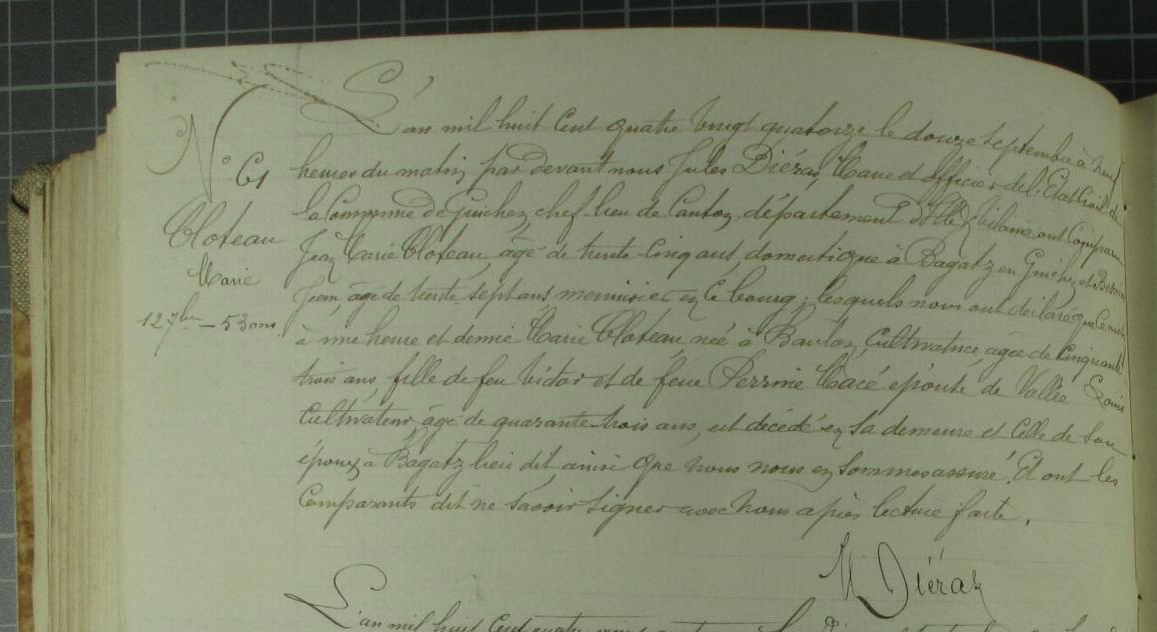 N° 61
Cloteau
Marie
12 7bre - 53 ans
L'an mil huit cent quatre vingt quatorze le douze septembre à neuf
heures du matin, par devant nous Jules Diéras, Maire et officier de l'Etat Civil de
la Commune de Guichen, chef-lieu de Canton, département d'Ille & Vilaine, ont comparu
Jean Marie Cloteau, âgé de trente-cinq ans, domestique à Bagatz en Guichen, et
Jean, âgé de trente sept ans menuisier en ce bourg; lesquels nous ont déclaré que ce matin
à une heure et demie Marie Cloteau, née à Baulon, Cultivatrice, âgée de Cinquante
trois ans, fille de feu Victor et de feue Perrine Macé épouse de Vallée Louis
Cultivateur âgé de quarante-trois ans, est décédé en sa demeure et celle de son
époux à Bagatz lieu dit ainsi que nous nous en sommes assuré. Et ont les
Comparants dit ne savoir signer avec nous après lecture faite.
Diéras
L'an mil huit cent quatre